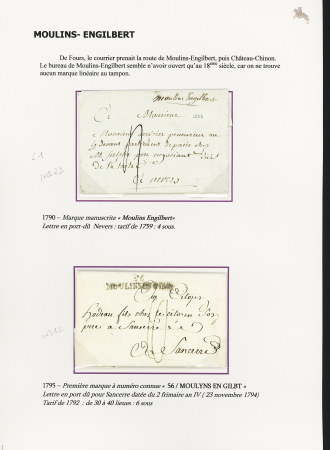 MOULINS- ENGILBERT
De Fours, le courrier prenait la route de Moulins-Engilbert, puis Château-Chinon.
Le bureau de Moulins-Engilbert semble n'avoir ouvert qu'au 18ème siècle, car on ne trouve
aucun marque linéaire au tampon.
moulins Engilbert
A
Monsieur
Monsieur
de la
a nevers
1790 – Marque manuscrite « Moulins Engilbert»
Lettre en port-dû Nevers : tarif de 1759 : 4 sous.
56
MOULINS EN GILB
Citoyen
fils chez le citoyen
a Sancerre
A Sancerre
1795 – Première marque à numéro connue « 56 / MOULYNS EN GILBT »
Lettre en port dû pour Sancerre datée du 2 frimaire an IV ( 23 novembre 1794)
Tarif de 1792 : de 30 à 40 lieues : 6 sous